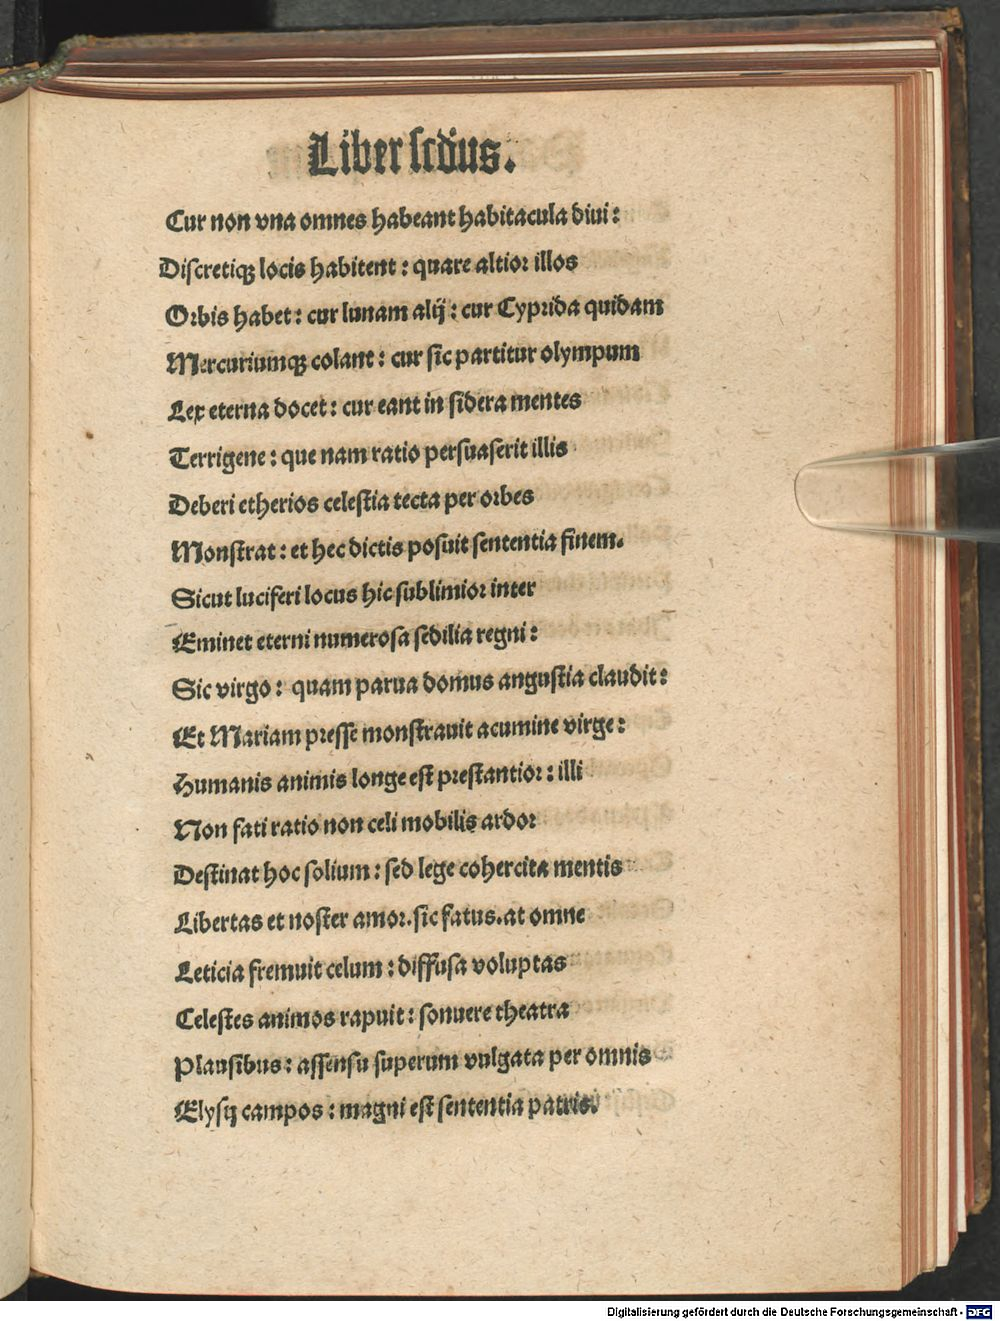 Liber scd̄us.
Cur non vna omnes habeant habitacula diui:
Discretiqꝫ locis habitent: quare altior illos
Orbis habet: cur lunam alij: cur Cyprida quidam
Mercuriumqꝫ colant: cur sic partitur olympum
Lex eterna docet: cur eant in sidera mentes
Terrigene: que nam ratio persuaserit illis
Deberi etherios celestia tecta per orbes
Monstrat: et hec dictis posuit sententia finem.
Sicut luciferi locus hic sublimior inter
Eminet eterni numerosa sedilia regni:
Sic virgo: quam parua domus angustia claudit:
Et Mariam presse monstrauit acumine virge:
Humanis animis longe est prestantior: illi
Non fati ratio non celi mobilis ardor
Destinat hoc solium: sed lege cohercita mentis
Libertas et noster amor. sic fatus. at omne
Leticia fremuit celum: diffusa voluptas
Celestes animos rapuit: sonuere theatra
Plausibus: assensu superum vulgata per omnis
Elysij campos: magni est sententia patris.
Digitalisierung gefördert durch die Deutsche Forschungsgemeinschaft - DFG